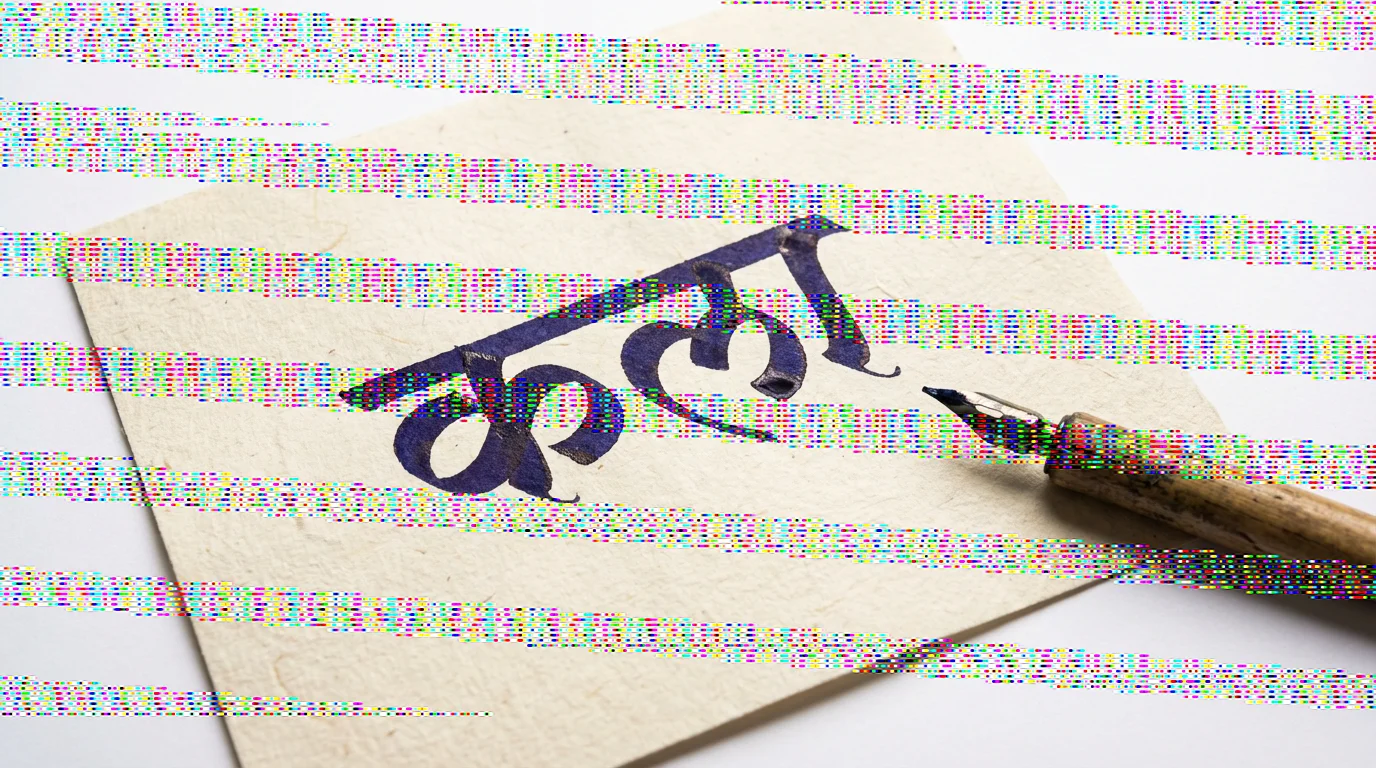 कला